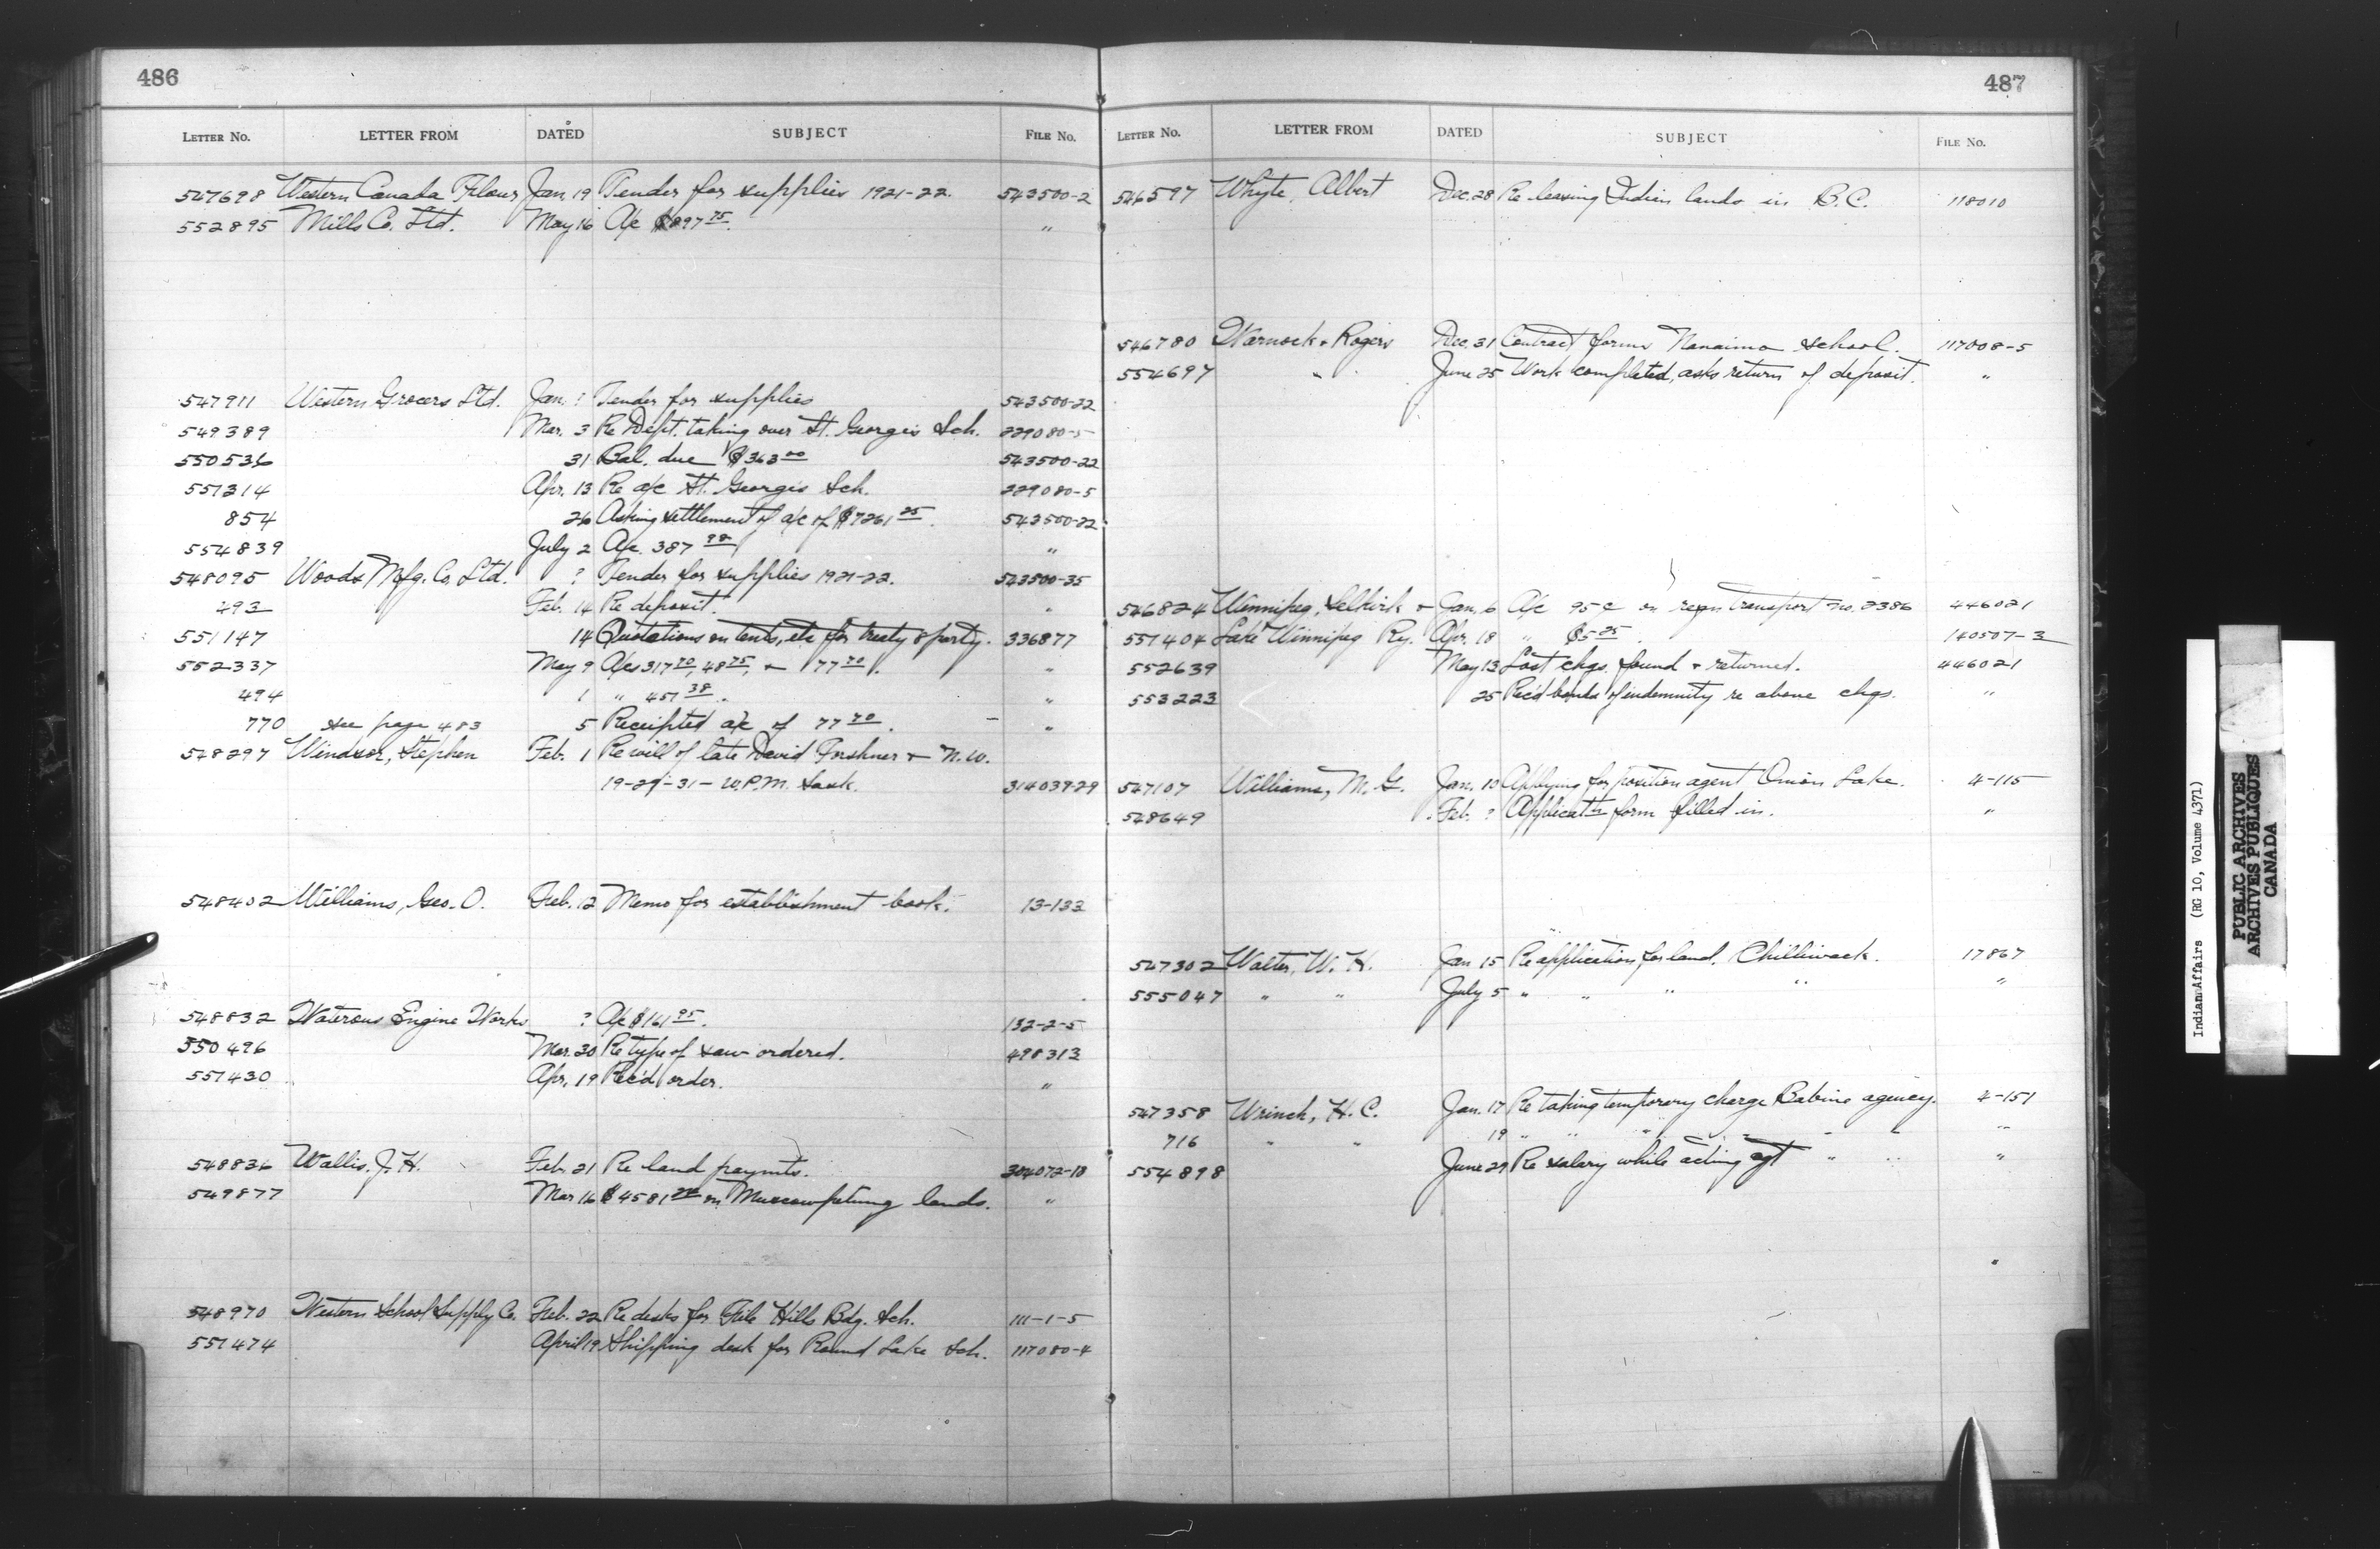 486
LETTER No. LETTER FROM DATED SUBJECT FILE No.
547698 Western Canada Flour Jan. 19 Tender for supplies 1921-22. 543500-2
552895 Mills Co. Ltd. May 16 A/c $897 75. "
547911 Western Grocers Ltd. Jan. ? Tender for supplies 543500-22
549389 Mar. 3 Re Dept. taking over St. George's Sch. 229080-5
550536 31 Bal. due $363 00 543500-22
551314 Apr. 13 Re a/c St. George's Sch. 229080-5
854 26 Asking settlement of a/c of $7261 25. 543500-22
554839 July 2 A/c. 387 98 "
548095 Woods Mfg. Co. Ltd. ? Tender for supplies 1921-22. 543500-35
293 Feb. 14 Re deposit. "
551147 14 Quotations on tents, etc for treaty & party. 336877
552337 May 9 A/cs 317 70, 48 75, + 77 70. "
494 1 " 457 38. "
770 see page 483 5 Receipted a/c of 77 70. "
548297 Windsor, Stephen Feb. 1 Re will of late David Forshner + N.W.
19-29-31-W.P.M. Sask. 314039-29
548402 Williams, Geo. O. Feb. 12 Memo for establishment book. 13-133
548832 Waterous Engine Works ? A/c $161 95. 132-2-5
550496 Mar. 30 Re type of saw ordered. 498313
551430 Apr. 19 Rec'd order. "
548836 Wallis, J. H. Feb. 21 Re land paymts. 304072-18
549877 Mar 16 $4581 on Muscowpetung lands. "
548970 Western School Supply Co. Feb. 22 Re desks for File Hills Bdg. Sch. 111-1-5
551474 April 19 Shipping desk for Round Lake Sch. 117080-4
487
LETTER No. LETTER FROM DATED SUBJECT FILE No.
546597 Whyte, Albert Dec. 28 Re leasing Indian lands in B.C. 118010
546780 Warnock & Rogers Dec. 31 Contract forms Nanaimo school. 117008-5
554697 " June 25 Work completed, asks return of deposit. "
546824 Winnipeg, Selkirk + Jan. 6 A/c 95¢ on reqn transport no. 2386 446021
551404 Lake Winnipeg Ry. Apr. 18 " $5 25. 140507-3
552639 May 13 Lost chqs. found + returned. 446021
553223 25 Rec'd bonds of indemnity re above chqs. "
547107 Williams, M. G. Jan. 10 Applying for position agent Onion Lake. 4-115
548649 Feb. ? Applicatn form filled in. "
547302 Walter, W. H. Jan 15 Re application for land, Chilliwack. 17867
555047 " " July 5 " " " " "
547358 Wrinch, H. C. Jan. 17 Re taking temporary charge Babine agency. 4-151
716 " " 19 " " " " " " "
554898 June 29 Re salary while acting agt " " "
Indian Affairs (RG 10, Volume 4371)
PUBLIC ARCHIVES
ARCHIVES PUBLIQUES
CANADA